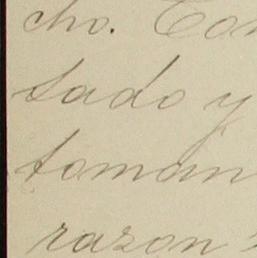 cho. Con
sado y
toman
razon